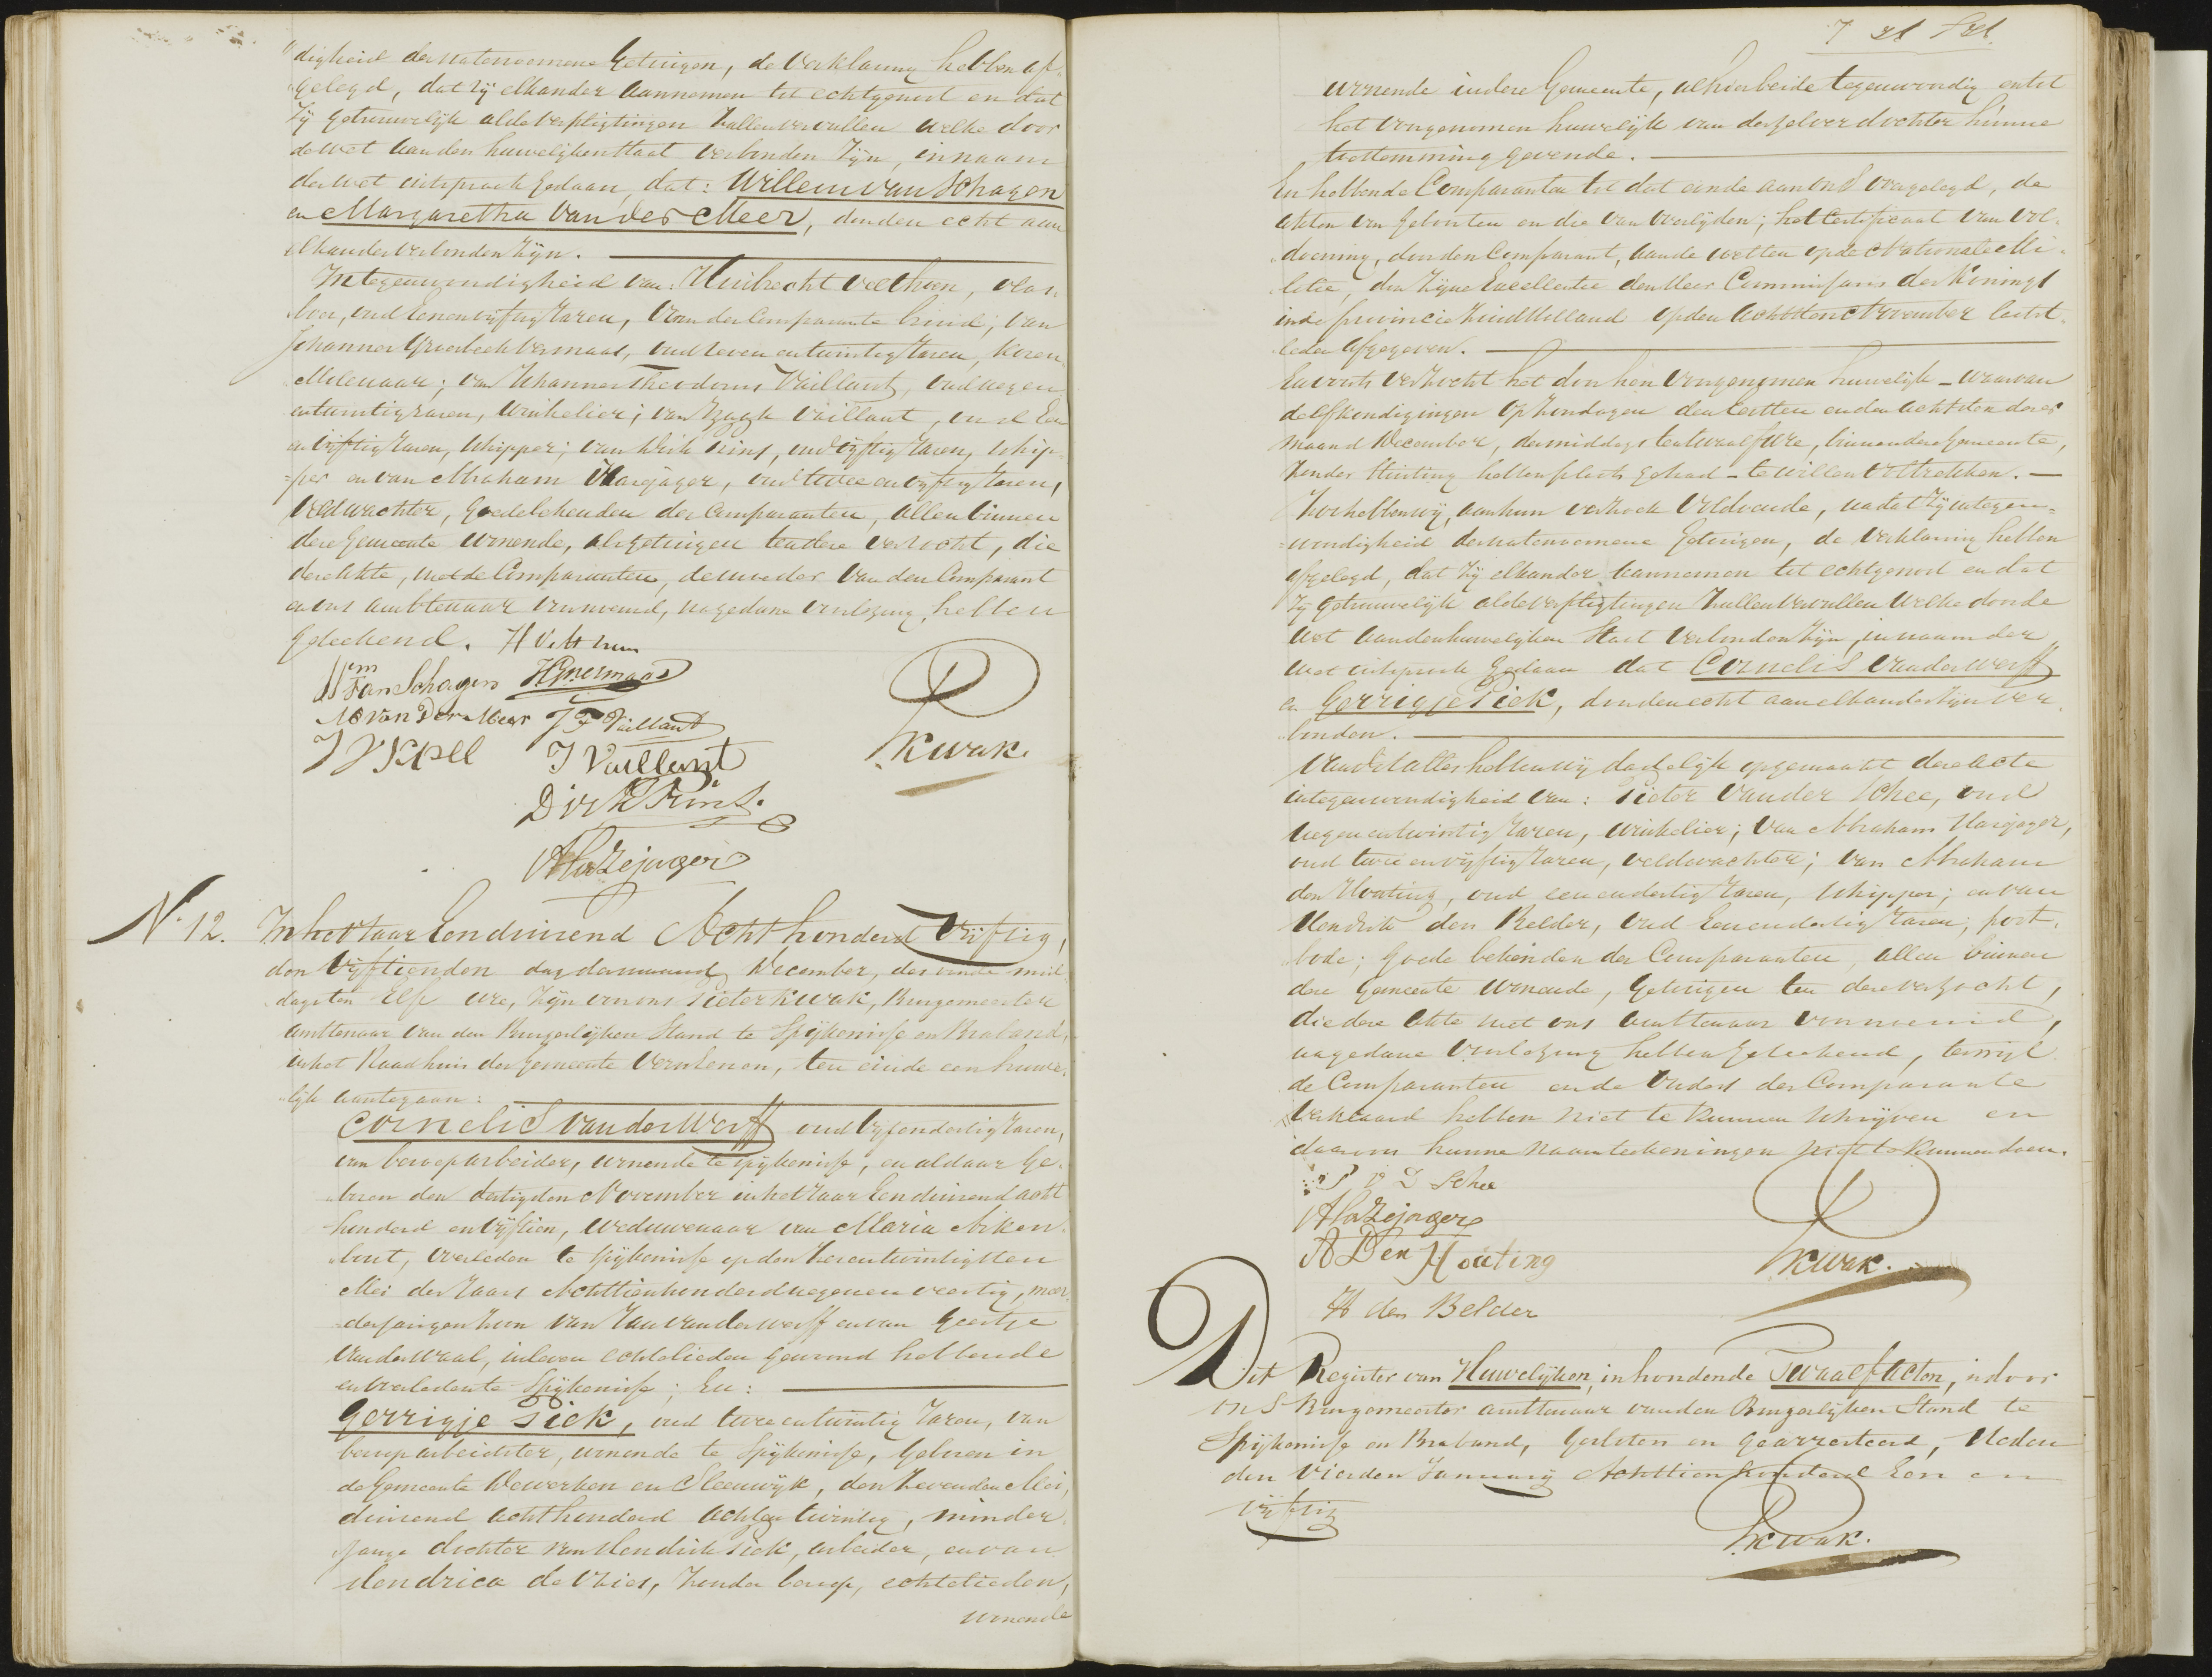 digheid der natenoemene Getuigen, de Verklaring hebben af-
gelegd, dat zij elkander Aannemen tot echtgenoot en dat
Zij getrouwelijk alde Verpligtingen Zullen vervullen welke door
de wet aan den huwelijken staat verbonden Zijn, in naam
der wet uitspraak gedaan, dat: Willem van Schagen
en Margaretha van der Meer, door den echt aan
elkander verbonden Zijn.
In tegenwoordigheid van: Huibrecht Velthoen, vlas-
boer, oud Zeven en vijftig Jaren, Van der Comparante Vriend; van
Johannes Groenbech Vermaas, oud Zeven en twintig Jaren, Koren-
Molenaar; van Johannes Theodorus Vaillant, oud negen
en twintig Jaren, Winkelier; van Izaak Vaillant, oud Een
en Vijftig Jaren, Schipper; van Dirk Prins, oud vijftig Jaren, schip-
per en van Abraham Hazejager, oud twee en vijftig Jaren,
Veldwachter, Goede bekenden der Comparanten, allen binnen
deze Gemeente Wonende, als getuigen ten deze verzocht, die
deze Akte, met de Comparanten, de moeder van den Comparant
en ons Ambtenaar voornoemd, na gedane voorlezing, hebben
geteekend. H Velthoen
Wm Van Schagen HGVermaas
M van Der Meer J T Vaillant
J V Kapell J Vaillant PKwak.
Dirk Prins.
A Hazejager
N. 12. In het Jaar Eenduizend Acht honderd Vijftig,
den Vijftienden dag der maand December, des voorde mid-
dags ten Elf ure, Zijn voor ons Pieter Kwak, Burgemeester
ambtenaar van den Burgerlijken Stand te Spijkenisse en Braband,
in het Raadhuis der Gemeente Verschenen, ten einde een huwe-
lijk aantegaan:
Cornelis van der Werff oud Vijfendertig Jaren,
van beroep arbeider, wonende te Spijkenisse, en aldaar Ge-
boren den dertigsten November in het Jaar Eenduizend acht
honderd en Vijftien, weduwenaar van Maria Arken-
bout, Overleden te Spijkenisse op den Zesentwintigsten
Mei des Jaars Achttienhonderdnegenenveertig, meer-
derjarigen Zoon van Jan van der Werff en van Geertje
van der Waal, in leven echtelieden gewoond hebbende
en overleden te Spijkenisse; En:
Gerrigje Piek, oud tweeentwintig Jaren, van
beroep arbeidster, wonende te Spijkenisse, Geboren in
de Gemeente Dewerken en Sleeuwijk, den Zevenden Mei,
duizend achthonderd achtentwintig, minder-
jarige dochter van Hendrik Piek, arbeider, en van
Hendrica de Vries, Zonder beroep, echtelieden,
wonende
7 et Lel
wonende in deze Gemeente, alhier beide tegenwoordig en tot
het voorgenomen huwelijk van derzelver dochter hunne
toestemming gevende.
En hebbende Comparanten tot dat einde aan ons voorgelegd, de
akten van Geboorten en die van Overlijden; het Certificaat van Vol-
doening, door den Comparant, aan de wetten op de Nationale Mi-
litie, door Zijne Excellentie den Heer Commissaris des Konings
in de provincie Zuid Holland op den Achtsten November laatst-
leden Afgegeven.
En voorts Verzocht het door hen Voorgenomen huwelijk - waarvan
de afkondigingen Op Zondagen den Eersten en den achtsten dezer
maand December, des middags ten twaalf Ure, binnen deze Gemeente,
Zonder Stuiting hebben plaats gehad - te willen Voltrekken. -
Zoo hebben wij, aan hun verzoek Voldoende, na dat Zij in tegen-
woordigheid der natenoemene Getuigen, de Verklaring hebben
afgelegd, dat Zij elkander aannemen tot echtgenoot en dat
Zij Getrouwelijk alde verpligtingen Zullen Vervullen Welke door de
Wet aan den huwelijken Staat Verbonden Zijn, in naam der
wet uitspraak Gedaan dat Cornelis van der Werff
en Gerrigje Piek, door den echt aan elkander Zijn ver-
bonden.
Van dit alles hebben wij dadelijk opgemaakt deze acte
in tegenwoordigheid van: Pieter van der Schee, oud
negenentwintig Jaren, winkelier; van Abraham Hazejager,
oud twee en vijftig Jaren, veldwachter; van Abraham
den Houting, oud eenendertig Jaren, Schipper; en van
Hendrik den Belder, oud Eenendertig Jaren, post-
bode; Goede bekenden der Comparanten, allen binnen
deze Gemeente Wonende, Getuigen ten deze verzocht,
die deze Akte met ons ambtenaar voornoemd,
na gedane Voorlezing hebben Geteekend, terwijl
de Comparanten en de Ouders der Comparante
verklaard hebben niet te kunnen Schrijven en
daarom hunne naamteekeningen niet te kunnen doen.
P v D Schee
A Hazejager
A Den Houting PKwak.
H den Belder
Dit Register van Huwelijken, inhoudende Twaalf Acten, is door
ons Burgemeester ambtenaar van den Burgerlijken Stand te
Spijkenisse en Braband, Gesloten en Gearresteerd, Heden
den Vierden Januarij Achttienhonderd Een en
vijftig
PKwak.